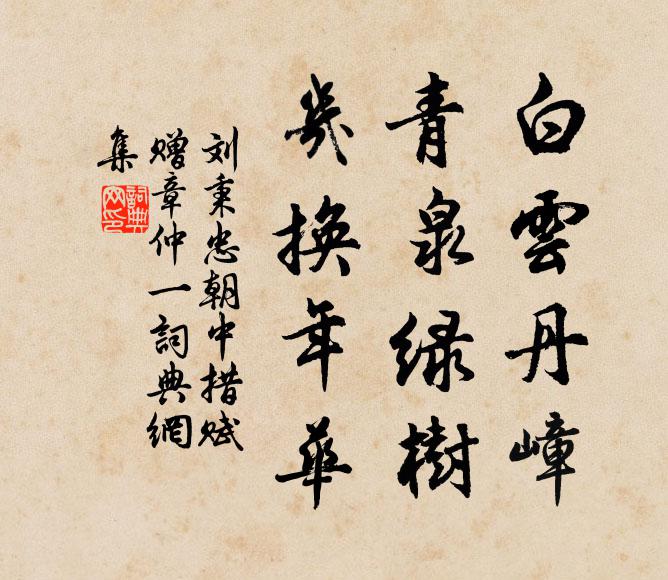 白雲丹嶂
青泉緑樹
幾換年華
刘秉忠朝中措赋
赠章仲一詞典網
集
詞典網印